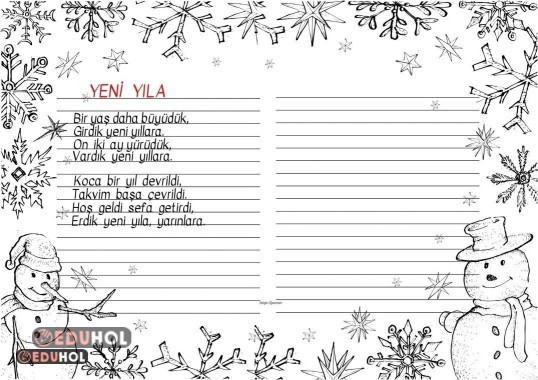 YENİ YILA
Bir yaş daha büyüdük,
Girdik yeni yıllara.
On iki ay yürüdük,
Vardık yeni yıllara.
Koca bir yıl devrildi,
Takvim başa çevrildi.
Hoş geldi sefa getirdi,
Erdik yeni yıla, yarınlara.
EDUHOL
EDUHOL